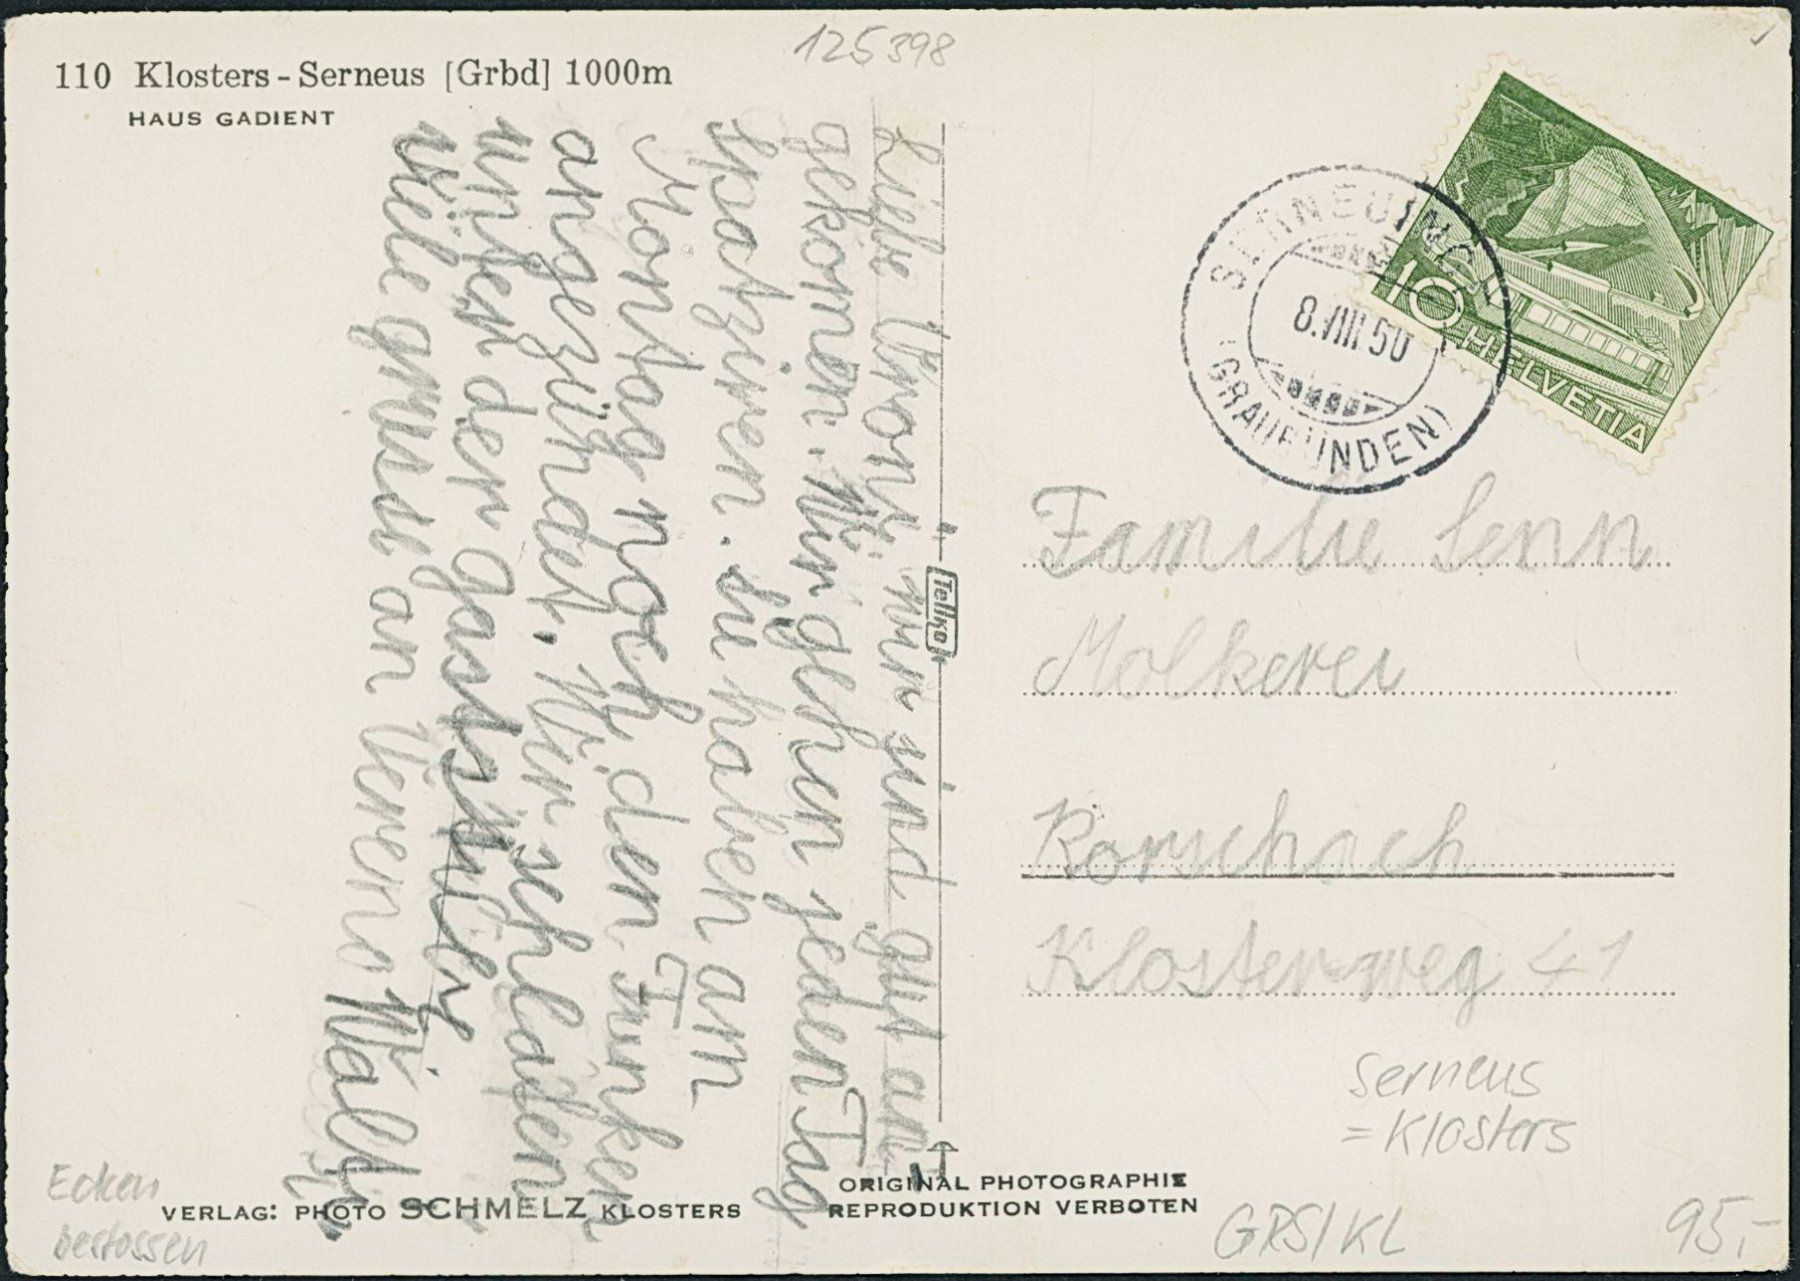 125398
110 Klosters-Serneus [Grbd] 1000m
HAUS GADIENT
SERNEUS
8.VIII 50
(GRAUBÜNDEN)
10
HELVETIA
Liebe wir sind gut an
gekomen. Wir gehen jeden Tag
spatziren. Sie haben am
Montag noch den Funken
angezündet. Wir schlafen
unter der
viele grüsse an Verena Wält
Tellko
Familie Senn
Molkerei
Rorschach
Klosterweg 41
Serneus
= Klosters
Ecken
bestossen
VERLAG: PHOTO SCHMELZ KLOSTERS
ORIGINAL PHOTOGRAPHIE
REPRODUKTION VERBOTEN
GRS/KL
95,-